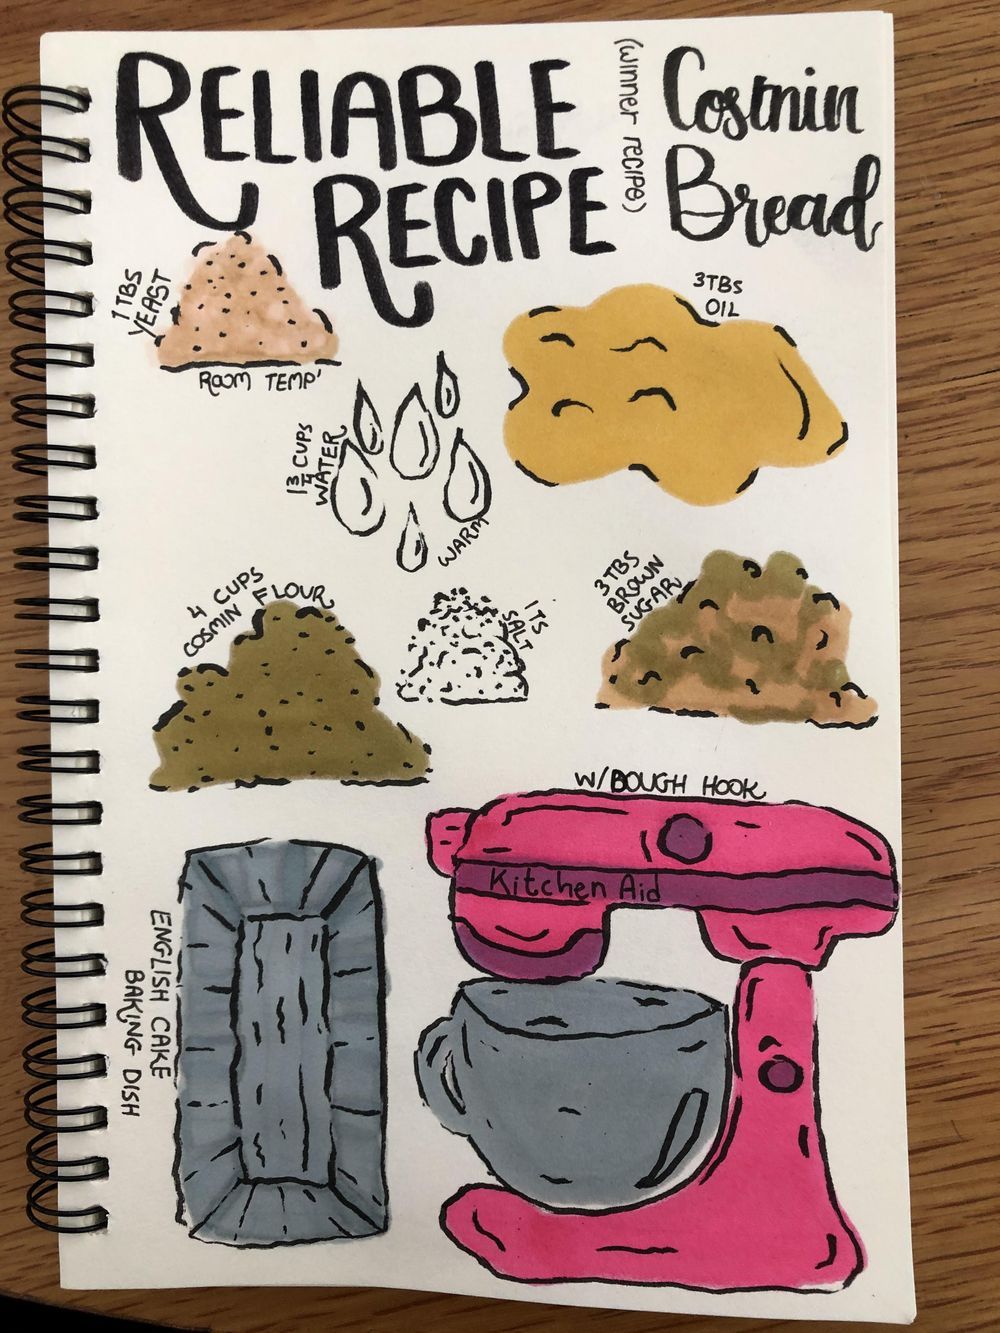 RELIABLE
RECIPE
(winner recipe)
Cosmin
Bread
1 TBS
YEAST
ROOM TEMP'
3TBS
OIL
1 3/4 CUPS
WATER
WARM
4 CUPS
COSMIN FLOUR
1 TS
SALT
3 TBS
BROWN
SUGAR
W/BOUGH HOOK
Kitchen Aid
ENGLISH CAKE
BAKING DISH